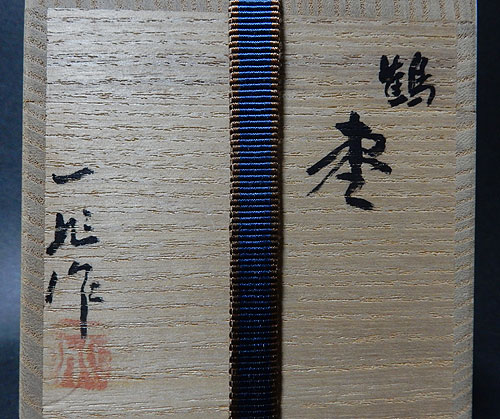 鶴棗
一兆作